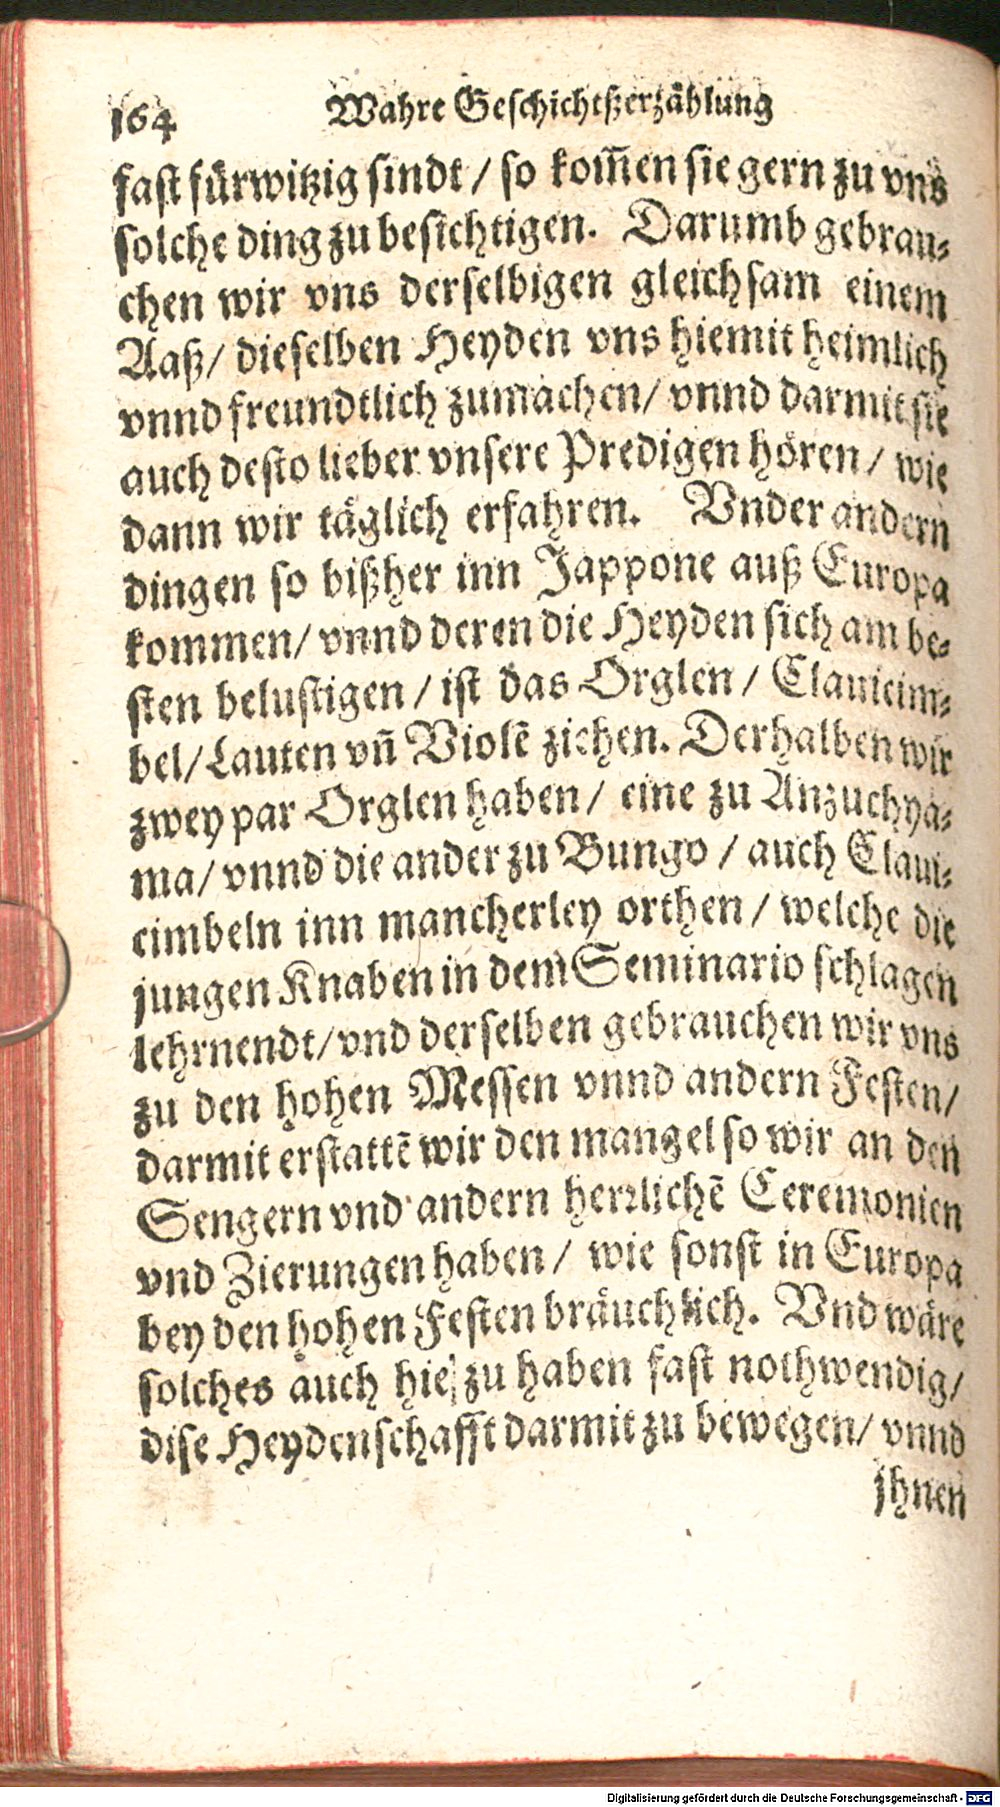 164 Wahre Geschichtßerzählung
fast fürwitzig sindt / so kom̃en sie gern zu vns
solche ding zu besichtigen. Darumb gebrau⸗
chen wir vns derselbigen gleichsam einem
Aaß / dieselben Heyden vns hiemit heimlich
vnnd freundtlich zumachen / vnnd darmit sie
auch desto lieber vnsere Predigen hören / wie
dann wir täglich erfahren. Vnder andern
dingen so bißher inn Jappone auß Europa
kommen / vnnd deren die Heyden sich am be⸗
sten belustigen / ist das Orglen / Clauicim⸗
bel / Lauten vn̄ Violē ziehen. Derhalben wir
zwey par Orglen haben / eine zu Anzuchya⸗
ma / vnnd die ander zu Bungo / auch Claui⸗
cimbeln inn mancherley orthen / welche die
jungen Knaben in dem Seminario schlagen
lehrnendt / vnd derselben gebrauchen wir vns
zu den hohen Messen vnnd andern Festen /
darmit erstattē wir den mangel so wir an den
Sengern vnd andern herzlichē Ceremonien
vnd Zierungen haben / wie sonst in Europa
bey den hohen Festen bräuchlich. Vnd wäre
solches auch hie zu haben fast nothwendig /
dise Heydenschafft darmit zu bewegen / vnnd
jhnen
Digitalisierung gefördert durch die Deutsche Forschungsgemeinschaft - DFG